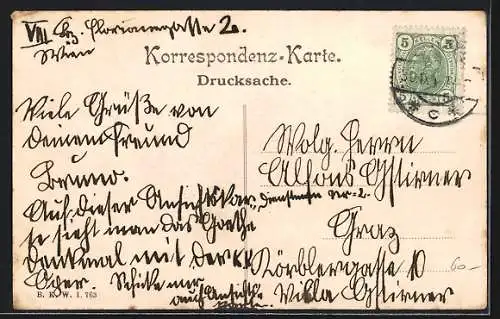 VIII Bz. Florianigasse 2.
Wien
Korrespondenz-Karte.
Drucksache.
5 5
Viele Grüße von
deinem Freund
Bruno.
Auf dieser Ansichtskar-
te sieht man das Goethe
denkmal mit der k.k.
Oper. Schicke mir
auch Ansichts-
karten.
B. K. W. I. 763
Wolg. Herrn
Alfons Gstirner
Graz
Körblergasse 10
Villa Gstirner
60-